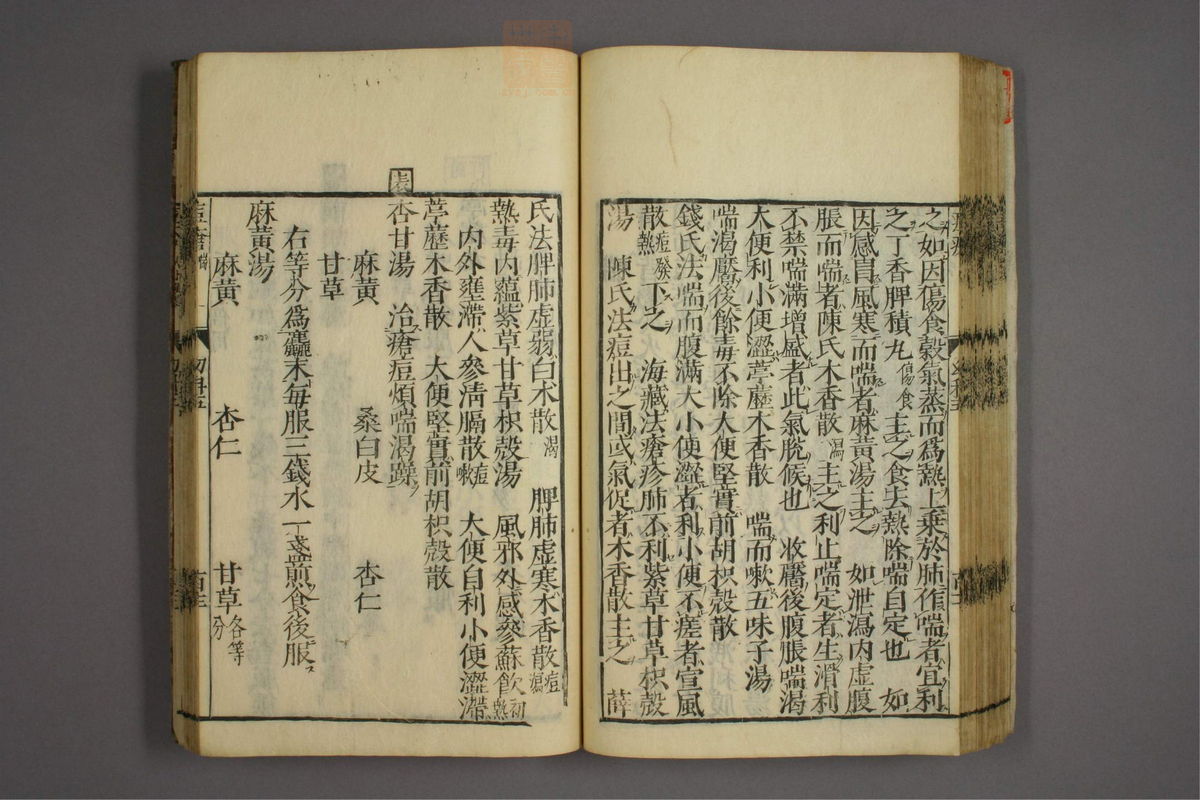 之如因傷食穀氣蒸而爲熱上乗於肺作喘者宜利
之丁香脾積丸傷食主之食去熱除喘自定也　如
因感冒風寒而喘者麻黃湯主之　如泄瀉内虚腹
脹而喘者陳氏木香散瀉主之利止喘定者生滑利
不禁喘滿增盛者此氣脱候也　收靨後腹脹喘渴
大便利小便澀葶藶木香散　喘而嗽五味子湯
喘渴靨後餘毒不除大便堅實前胡枳殼散
錢氏法喘而腹滿大小便澀者利小便不瘥者宣風
散痘發熱下之　海藏法瘡疹肺不利紫草甘草枳殼
湯　陳氏法痘出之間或氣促者木香散主之　薛
氏法脾肺虚弱白朮散渴　脾肺虚寒木香散痘瀉
熱毒内蘊紫草甘草枳殼湯　風邪外感參蘇飮初熱
内外壅滯人參清膈散痘嗽　大便自利小便澀滯
葶藶木香散　大便堅實前胡枳殼散
杏甘湯　治瘡痘煩喘渴躁
麻黃　桑白皮　杏仁
甘草
右等分爲麤末毎服三錢水一盞煎食後服
麻黃湯
麻黃　杏仁　甘草各等分
痘瘡 喘